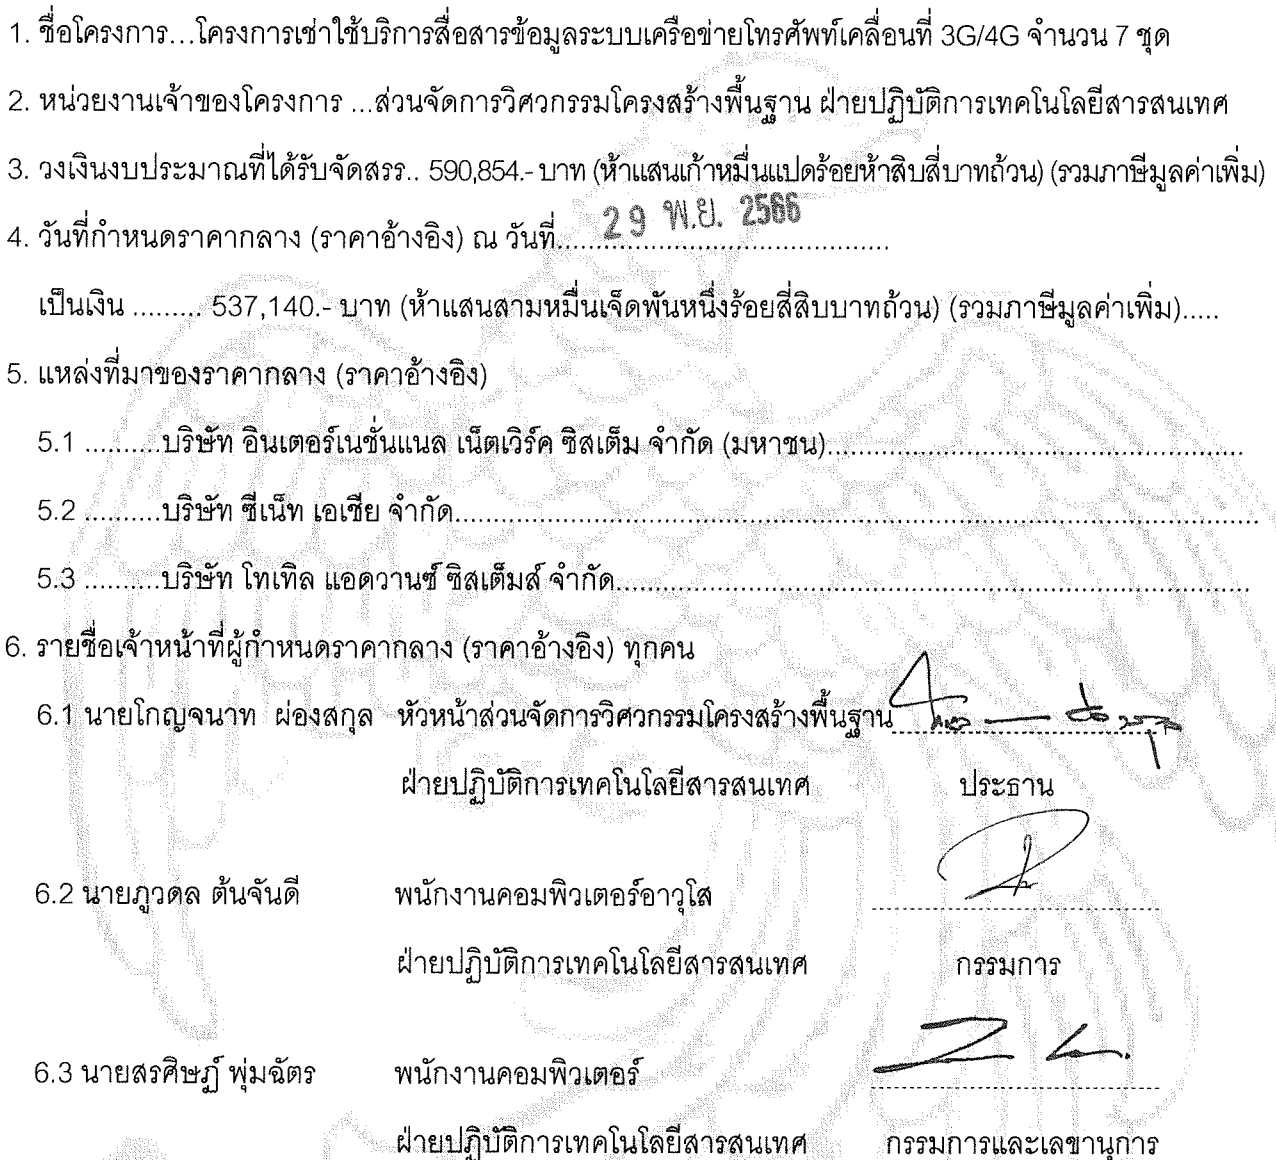 1. ชื่อโครงการ...โครงการเช่าใช้บริการสื่อสารข้อมูลระบบเครือข่ายโทรศัพท์เคลื่อนที่ 3G/4G จำนวน 7 ชุด
2. หน่วยงานเจ้าของโครงการ ...ส่วนจัดการวิศวกรรมโครงสร้างพื้นฐาน ฝ่ายปฏิบัติการเทคโนโลยีสารสนเทศ
3. วงเงินงบประมาณที่ได้รับจัดสรร.. 590,854.- บาท (ห้าแสนเก้าหมื่นแปดร้อยห้าสิบสี่บาทถ้วน) (รวมภาษีมูลค่าเพิ่ม)
4. วันที่กำหนดราคากลาง (ราคาอ้างอิง) ณ วันที่.....29 พ.ย. 2566.....
เป็นเงิน ......... 537,140.- บาท (ห้าแสนสามหมื่นเจ็ดพันหนึ่งร้อยสี่สิบบาทถ้วน) (รวมภาษีมูลค่าเพิ่ม).....
5. แหล่งที่มาของราคากลาง (ราคาอ้างอิง)
5.1 ..........บริษัท อินเตอร์เนชั่นแนล เน็ตเวิร์ค ซิสเต็ม จำกัด (มหาชน)..........
5.2 ..........บริษัท ซีเน็ท เอเชีย จำกัด..........
5.3 ..........บริษัท โทเทิล แอดวานซ์ ซิสเต็มส์ จำกัด..........
6. รายชื่อเจ้าหน้าที่ผู้กำหนดราคากลาง (ราคาอ้างอิง) ทุกคน
6.1 นายโกญจนาท ผ่องสกุล หัวหน้าส่วนจัดการวิศวกรรมโครงสร้างพื้นฐาน
ฝ่ายปฏิบัติการเทคโนโลยีสารสนเทศ ประธาน
6.2 นายภูวดล ต้นจันดี พนักงานคอมพิวเตอร์อาวุโส
ฝ่ายปฏิบัติการเทคโนโลยีสารสนเทศ กรรมการ
6.3 นายสรศิษฏ์ พุ่มฉัตร พนักงานคอมพิวเตอร์
ฝ่ายปฏิบัติการเทคโนโลยีสารสนเทศ กรรมการและเลขานุการ